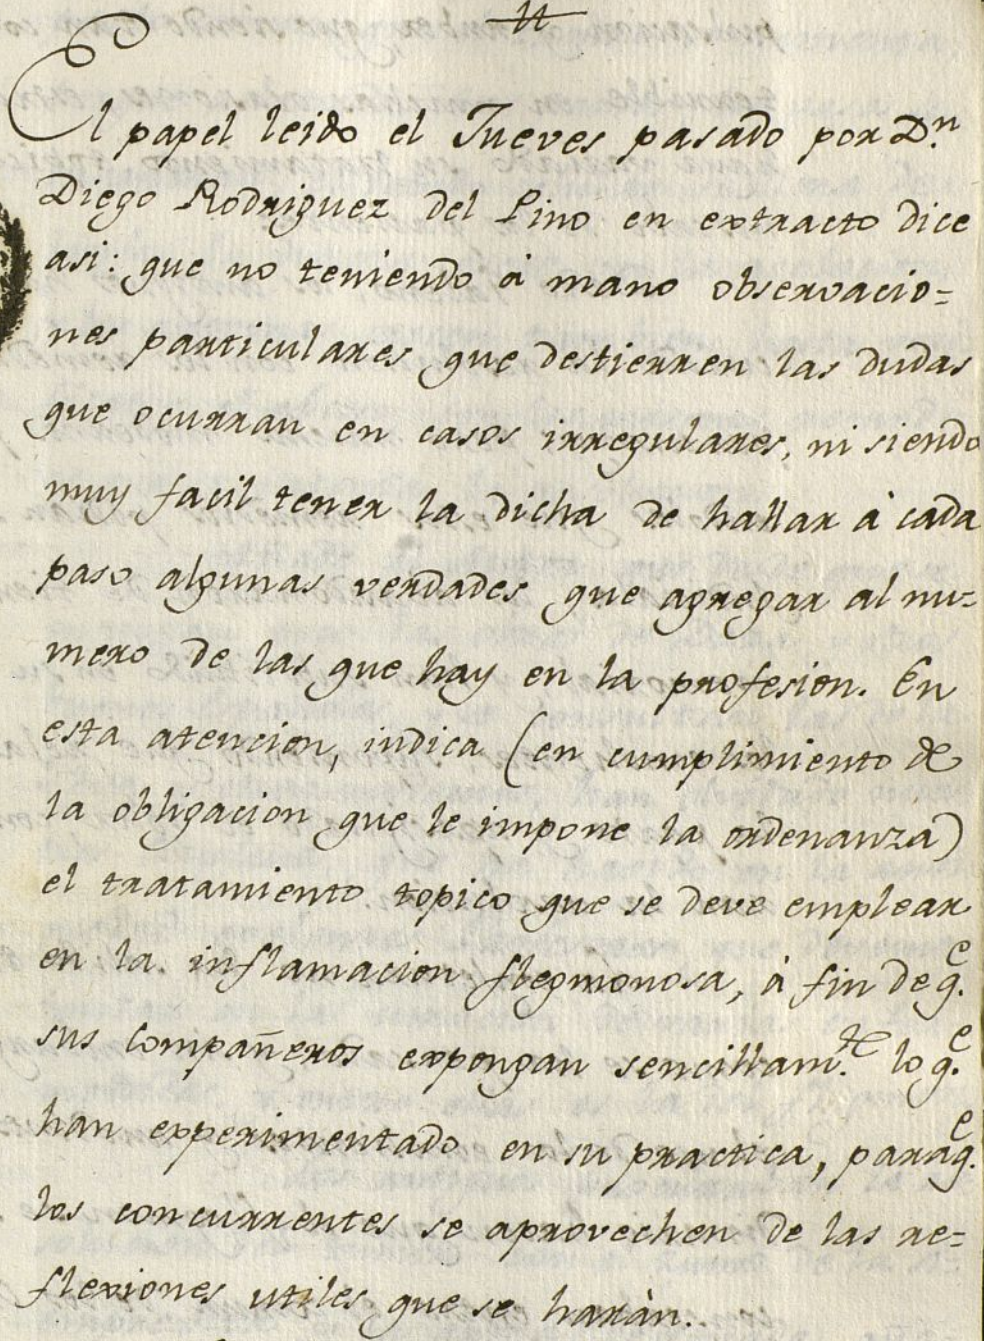 El papel leido el Jueves pasado por Dn.
Diego Rodriguez del Pino en extracto dice
asi: que no teniendo à mano observacio=
nes particulares que destierren las dudas
que ocurran en casos irregulares, ni siendo
muy facil tener la dicha de hallar à cada
paso algunas verdades que agregar al nu=
mero de las que hay en la profesion. En
esta atencion, indica (en cumplimiento de
la obligacion que le impone la ordenanza)
el tratamiento topico que se deve emplear
en la inflamacion flegmonosa, à fin de qe.
sus compañeros expongan sencillamte. lo qe.
han experimentado en su practica, para qe.
los concurrentes se aprovechen de las re=
flexiones utiles que se haràn.